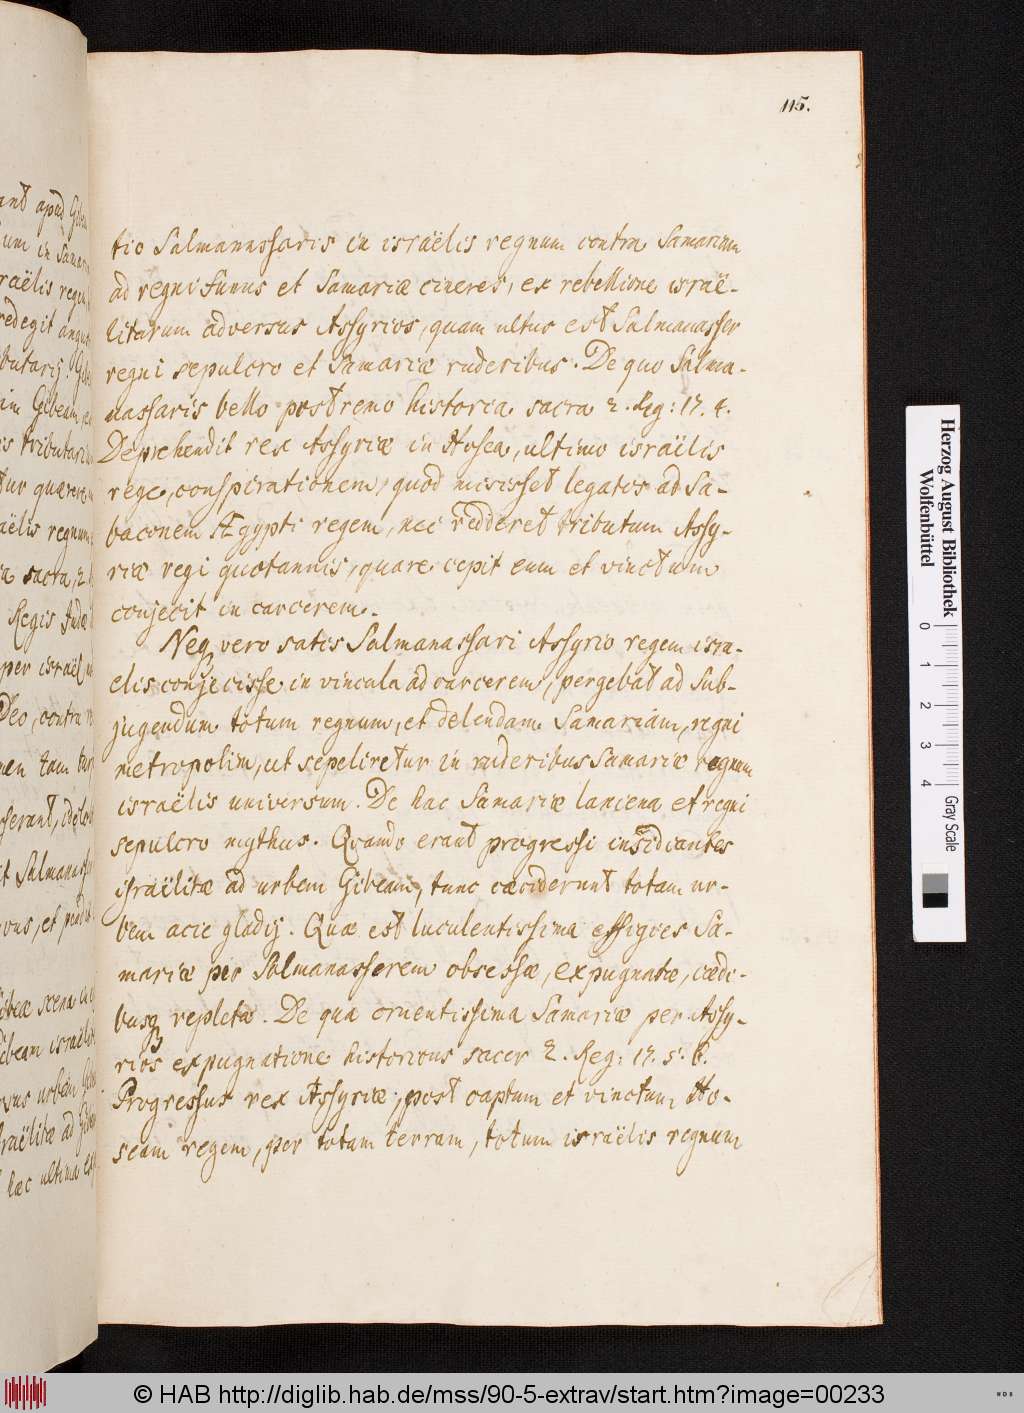 115.
tio Salmannssaris in israëlis regnum contra Samariam
ad regni funus et Samariæ cineres, ex rebellione israë-
litarum adversus Assyrios, quam ultus est Salmanasser
regni sepulcro et Samariæ ruderibus. De quo Salma-
nassaris bello postremo historia sacra 2. Reg: 17. 4.
Deprehendit rex Assyriæ in Hosea, ultimo israëlis
rege, conspirationem, quod misisset legatos ad Sa-
baconem Ægypti regem, nec redderet tributum Assy-
riæ regi quotannis, quare cepit eum et vinctum
conjecit in carcerem.
Neq vero satis Salmanassari Assyrio regem isra-
elis conjecisse in vincula ad carcerem, pergebat ad sub-
jugendum totum regnum, et delendam Samariam, regni
metropolim, ut sepeliretur in ruderibus Samariæ regnum
israëlis universum. De hac Samariæ laniena et regni
sepulcro mythus. Quando erant progressi insidiantes
israëlitæ ad urbem Gibeam, tunc cæciderunt totam ur-
bem acie gladij. Quæ est luculentissima effigies Sa-
mariæ per Salmanasserem obsessæ, expugnatæ, cædi-
busq repletæ. De qua cruentissima Samariæ per Assy-
rios expugnatione historicus sacer 2. Reg: 17. 5. 6.
Progressus rex Assyriæ, post captum et vinctum Ho-
seam regem, per totam terram, totum israëlis regnum
ant apud
um in
redegit
im Gibeam
tur
sacra, 2.
Regis
per israël
Deo, contra
tam
et
scena
urbem
ad
hæc ultima
Herzog August Bibliothek
Wolfenbüttel
0 1 2 3 4 Gray Scale
© HAB http://diglib.hab.de/mss/90-5-extrav/start.htm?image=00233